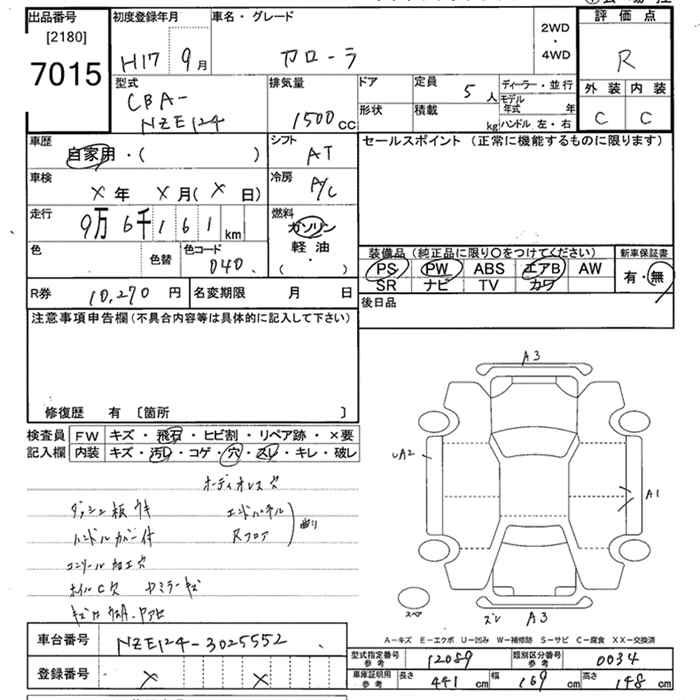 出品番号
[2180]
7015
初度登録年月
H17 9月
車名・グレード
カローラ
2WD
・
4WD
評価点
R
外装 内装
C C
型式
CBA-
NZE124
排気量
1500cc
ドア
定員 5人
形状
積載 kg
ディーラー・並行
モデル年式 年
ハンドル 左・右
車歴
自家用・( )
シフト
AT
セールスポイント (正常に機能するものに限ります)
車検
×年 ×月(×日)
冷房
A/C
走行
9万6千161km
燃料
ガソリン
軽油
( ・ )
色
色替
色コード
040
装備品 (純正品に限り○をつけてください)
PS PW ABS エアB AW
SR ナビ TV カワ
新車保証書
有・無
R券 10,270円
名変期限 月 日
後日品
注意事項申告欄(不具合内容等は具体的に記入して下さい)
修復歴 有 [箇所 ]
検査員
記入欄
FW キズ・飛石・ヒビ割・リペア跡・×要
内装 キズ・汚レ・コゲ・穴・スレ・キレ・破レ
オーディオレス穴
ダッシュ板ウキ
ハンドルカバー付
エンドパネル
Rフロア
曲り
コンソール加工穴
A3
UA2
A1
スペア
ズレ A3
A-キズ E-エクボ U-凹み W-補修跡 S-サビ C-腐食 XX-交換済
車台番号
NZE124-3025552
登録番号
× ×
型式指定番号
参考
12089
類別区分番号
参考
0034
車庫証明用
参考
長さ 441cm
幅 169cm
高さ 148cm